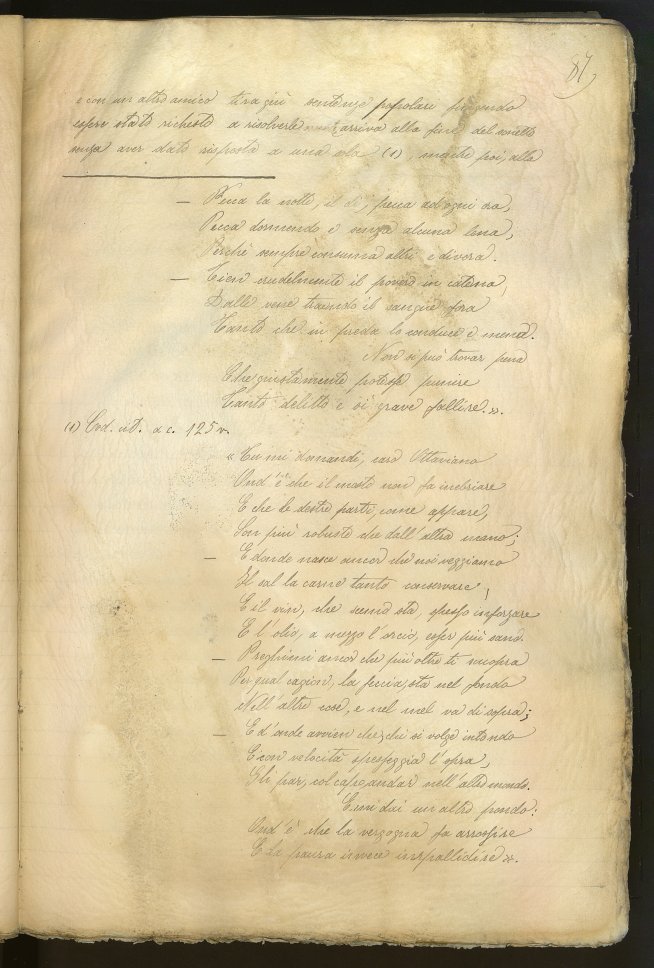 87
e con un altro amico tira giù sentenze popolari fingendo
essere stato richesto a risolverle arriva alla fine del sonetto
senza aver dato risposta a una sola (1), mentre poi, alla
— Pecca la notte, il dì, pecca ad ogni ora,
Pecca dormendo e senza alcuna lena,
Perchè sempre consuma altri e divora.
— Tien crudelmente il povero in catena,
Dalle vene traendo il sangue fora
Tanto che in preda lo conduce e mena.
Non si può trovar pena
Che giustamente potesse punire
Tanto delitto e sì grave fallire.».
(1) Cod. cit. a c. 125 v.
« Tu mi domandi, caro Ottaviano
Ond'è che il mosto non fa inebriare
E che le destre parti, come appare,
Son più robuste che dall'altra mano;
— E donde nasce ancor che noi veggiamo
Il sal la carne tanto conservare;
E il vin, che scemo sta, spesso inforzare
E l'olio, a mezzo l'orcio, esser più sano.
— Preghimi ancor che più oltre ti scuopra
Per qual cagion, la feccia, sta nel fondo
Nell'altre cose, e nel mel va di sopra;
— E d'onde avvien che, chi si volge intondo
E con velocità spesseggia l'opra,
Gli par, col capo andar nell'altro mondo.
E mi dai un altro pondo:
Ond'è che la vergogna fa arrossire
E la paura invece impallidire».